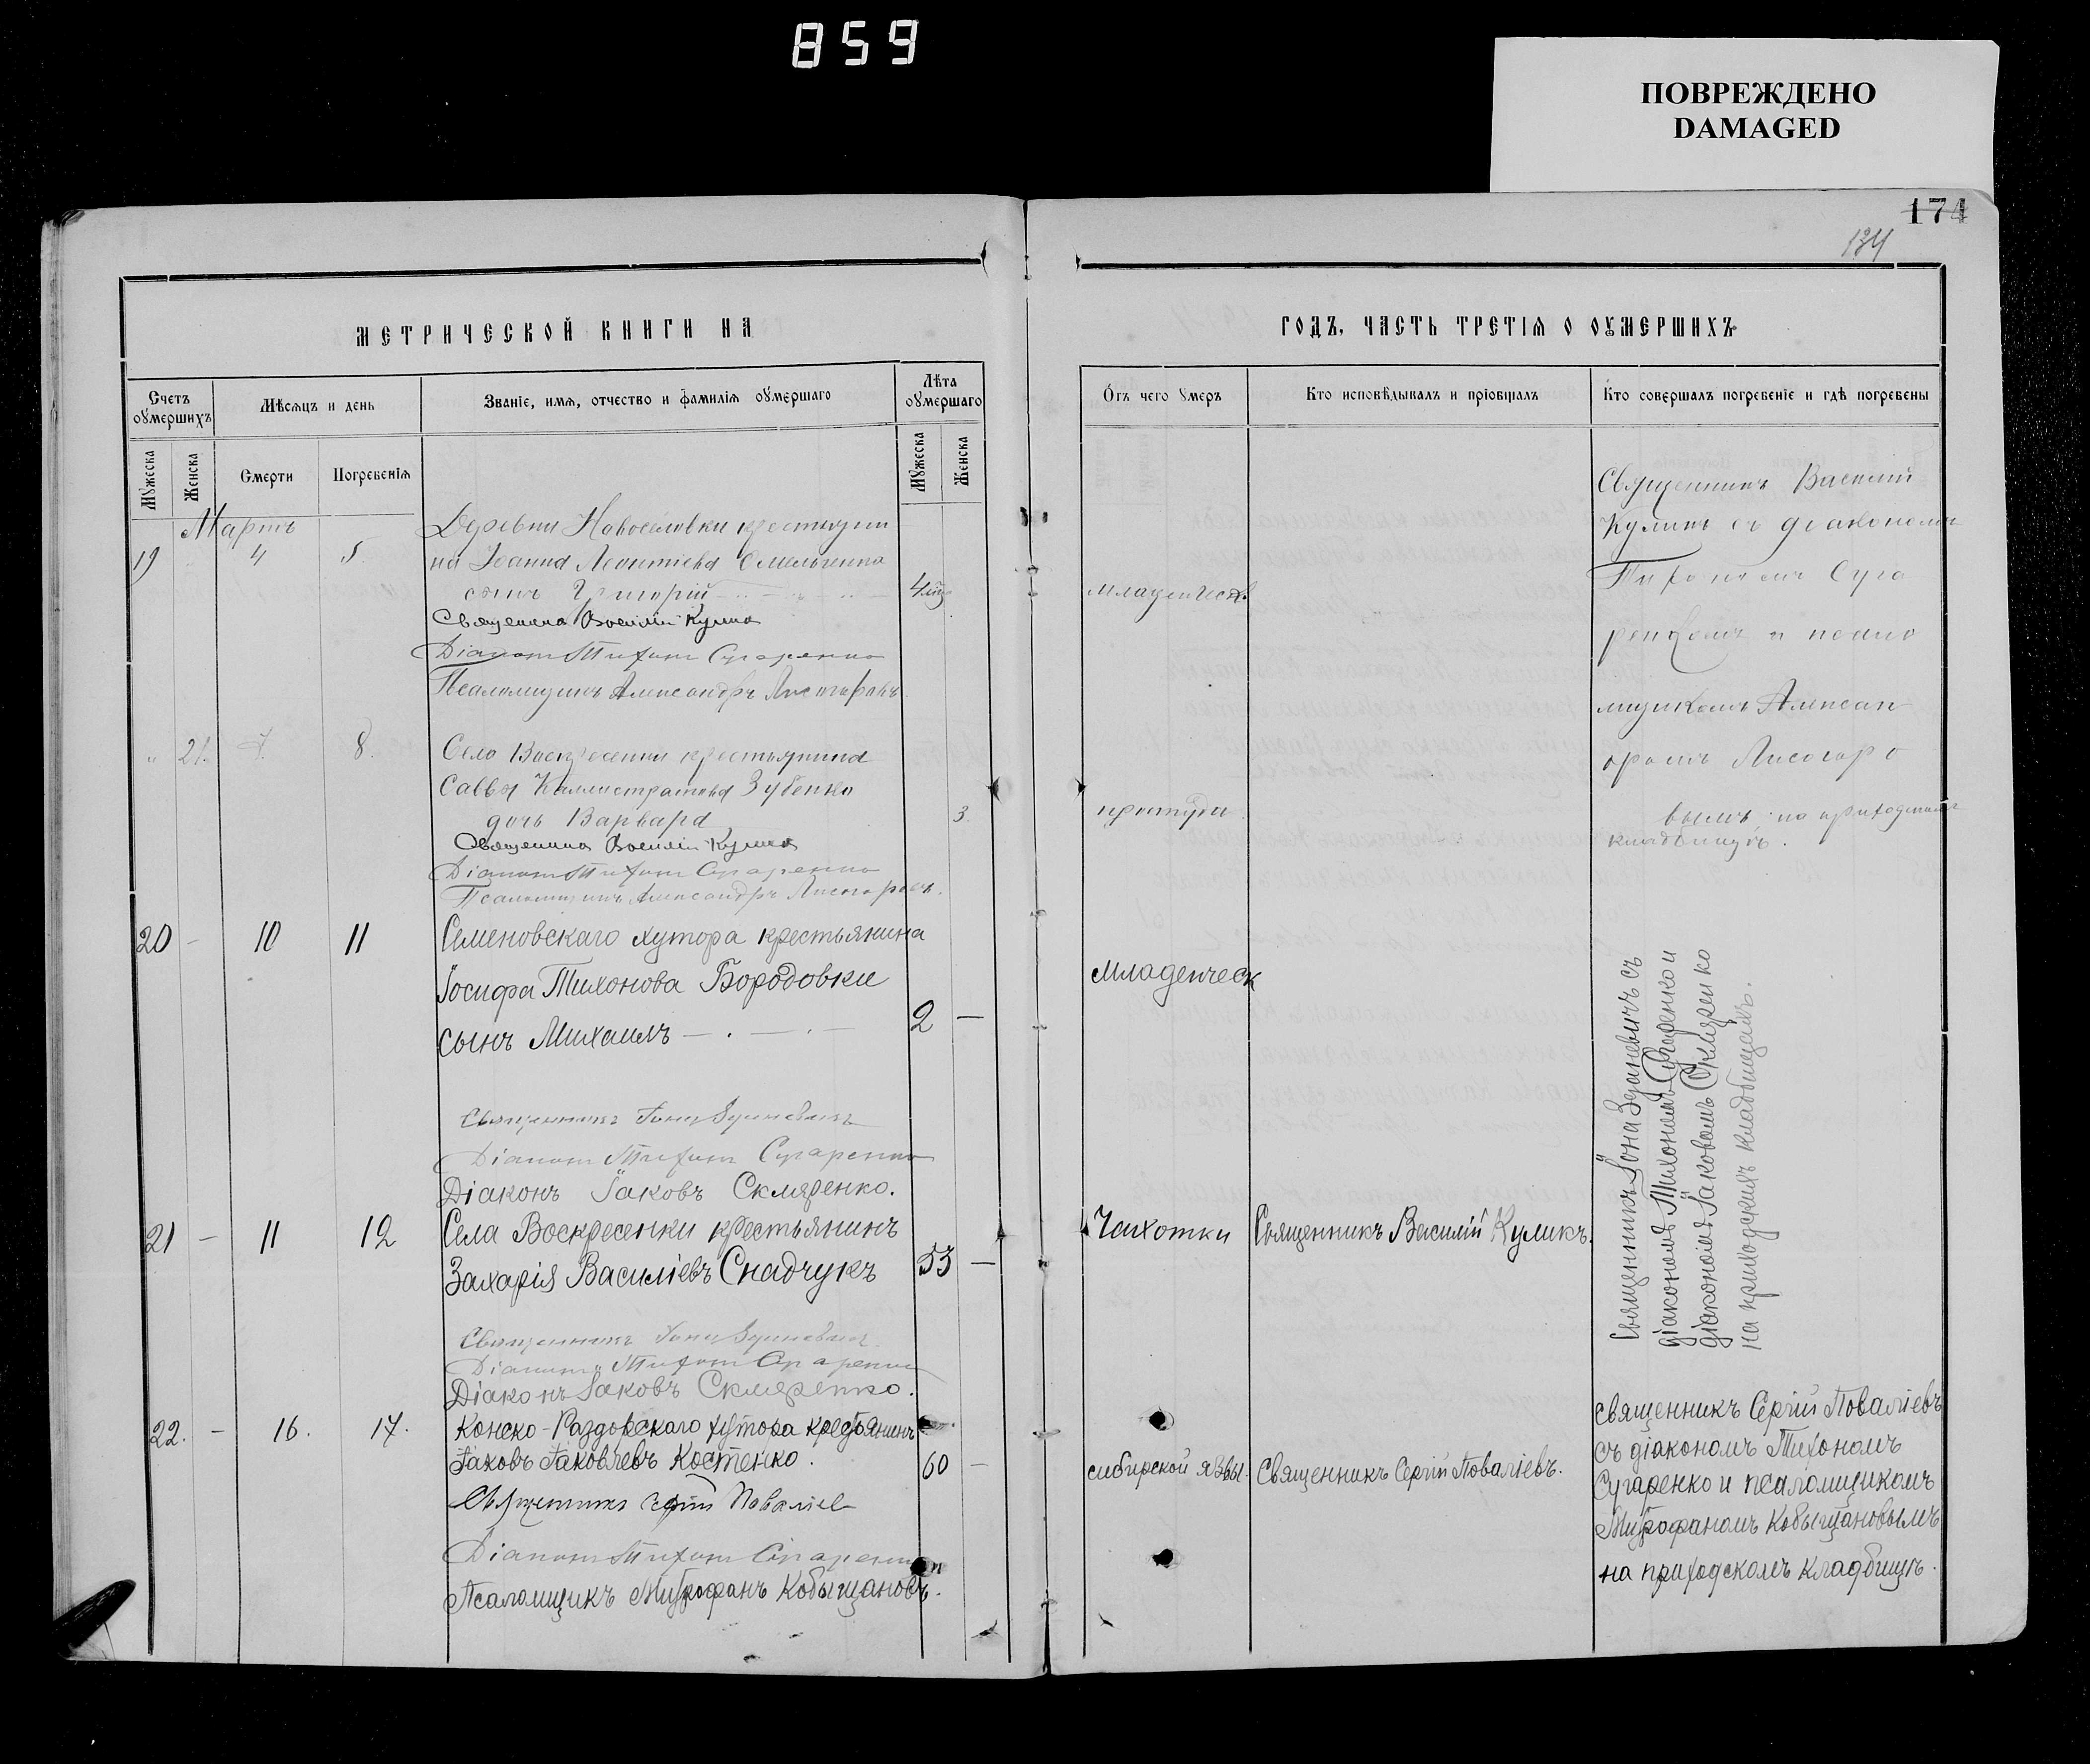 859
ПОВРЕЖДЕНО
DAMAGED
174
134
МЕТРИЧЕСКОЙ КНИГИ НА
Счетъ оумершихъ
Мѣсяцъ и день
Званіе, имя, отчество и фамилія оумершаго
Лѣта оумершаго
Мужеска
Женска
Смерти
Погребенія
Мужеска
Женска
Мартъ
19 4 5
Деревни Новоселовки крестьяни
на Іоанна Леонтіева Омельченка
сынъ Григорій
4 мц
Священникъ Василій Куликъ
Діаконъ Тихонъ Сугаренко
Псаломщикъ Александръ Лисогоровъ
" 21. 7. 8.
Село Воскресенки крестьянина
Саввы Каллистратова Зубенко
дочь Варвара
3.
Священникъ Василій Куликъ
Діаконъ Тихонъ Сугаренко
Псаломщикъ Александръ Лисогоровъ.
20 - 10 11
Семеновскаго хутора крестьянина
Іосифа Тихонова Бородовки
сынъ Михаилъ
2 —
Священникъ Іона Здзаневичъ
Діаконъ Тихонъ Сугаренко
Діаконъ Іаковъ Скляренко.
21 - 11 12
Села Воскресенки крестьянинъ
Захарія Василіевъ Снадчукъ
53 —
Священникъ Іона
Діаконъ Тихонъ Сугаренко
Діаконъ Іаковъ Скляренко.
22. - 16. 17.
Конско-Раздорскаго хутора крестьянинъ
Іаковъ Іаковлевъ Костенко.
60 -
Священникъ Сергій Поваліев
Діаконъ Тихонъ Сугаренко
Псаломщикъ Митрофанъ Кобыщановъ.
ГОДЪ, ЧАСТЬ ТРЕТІЯ О ОУМЕРШИХЪ
Отъ чего умеръ
Кто исповѣдывалъ и пріобщалъ
Кто совершалъ погребеніе и гдѣ погребены
младенческ.
Священникъ Василій
Куликъ съ діакономъ
Тихономъ Суга
ренкомъ и псало
мщикомъ Алексан-
дромъ Лисогоро
вымъ, на приходскомъ
кладбищѣ.
простуда
младенческ
Священникъ Іона Здзаневичъ съ
діакономъ Тихономъ Сугаренко и
діакономъ Іаковомъ Скляренко
на приходскихъ кладбищахъ.
Чахотки
Священникъ Василій Куликъ.
сибирской язвы.
Священникъ Сергій Поваліевъ.
священникъ Сергій Поваліевъ
съ діакономъ Тихономъ
Сугаренко и псаломщикомъ
Митрофаномъ Кобыщановымъ
на приходскомъ кладбищѣ.